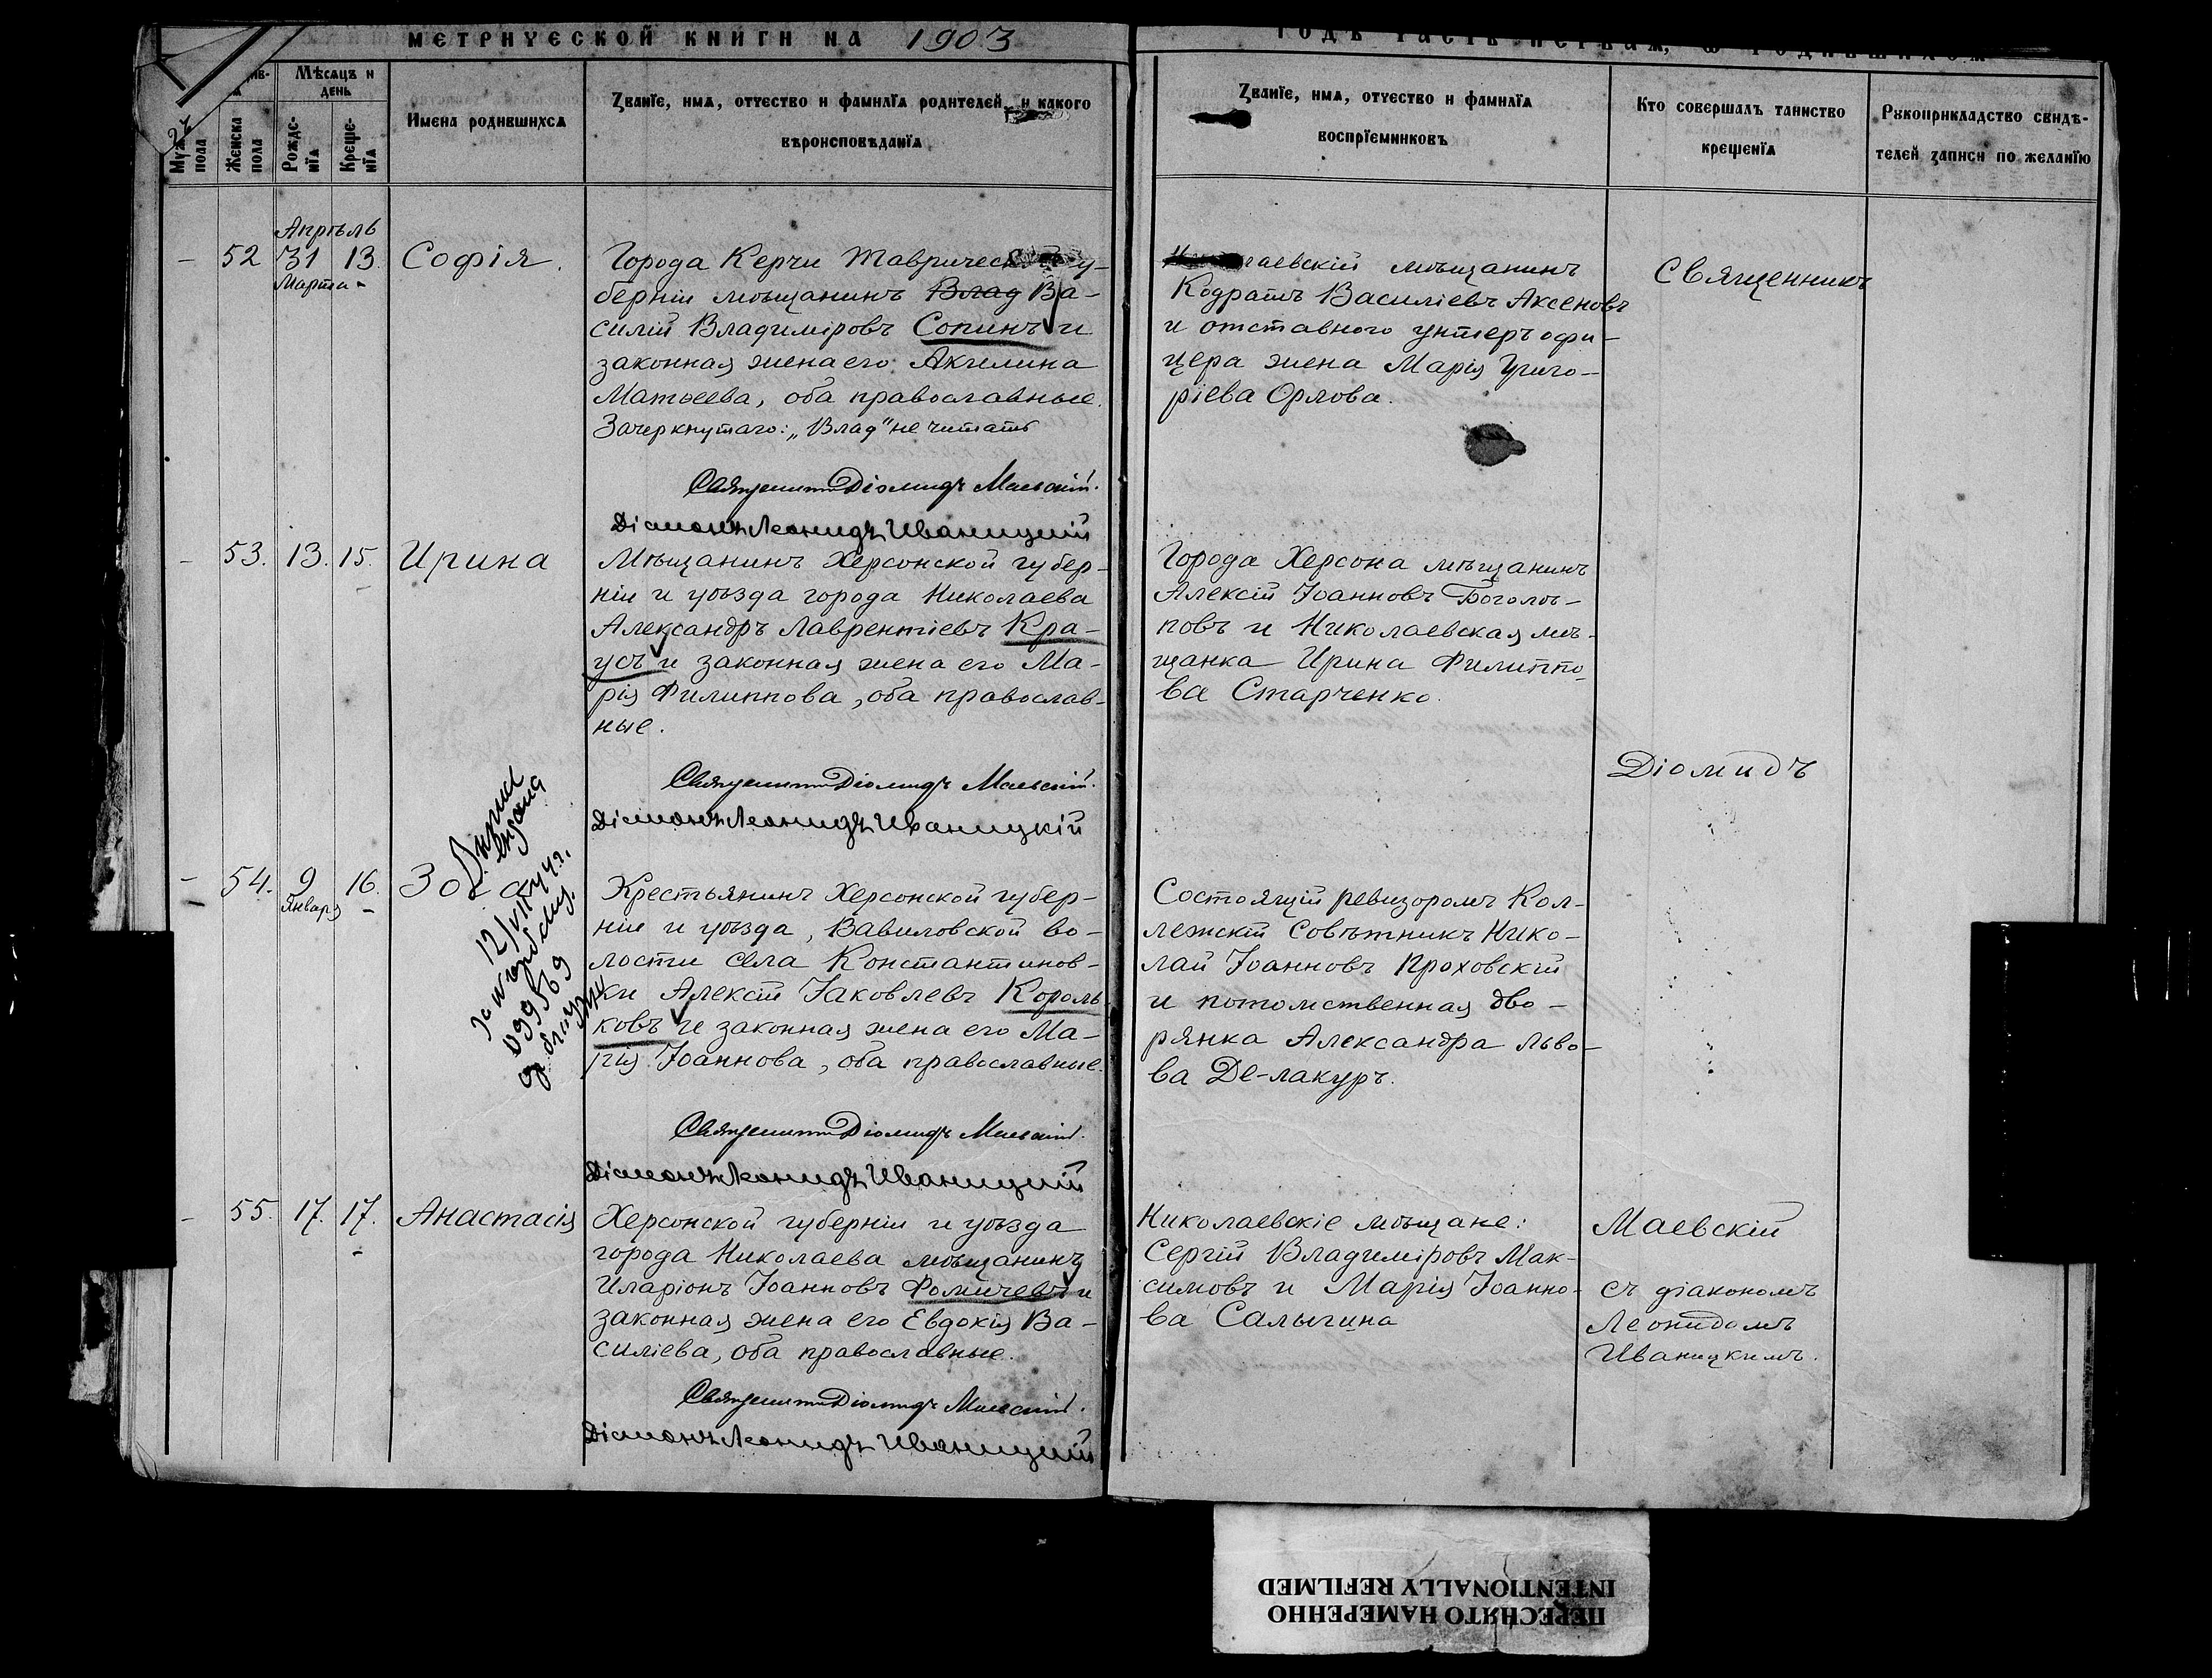 МЕТРИЧЕСКОЙ КНИГИ НА 1903
ГОДЪ ЧАСТЬ ПЕРВАЯ, О РОДИВШИХСЯ
Мѣсяцъ и
день
Мужеска
пола
Женска
пола
Рожде-
нія
Креще-
нія
Имена родившихся
Званіе, имя, отчество и фамилія родителей, и какого
вѣроисповѣданія
Званіе, имя, отчество и фамилія
воспріемниковъ
Кто совершалъ таинство
крещенія
Рукоприкладство свидѣ-
телей записи по желанію
Апрѣль
- 52 31 13. Софія.
Марта
Города Керчи Таврической гу-
берніи мѣщанинъ Влад Ва-
силій Владиміровъ Сопинъ и
законная жена его Акилина
Матѳеева, оба православные.
Зачеркнутаго: „Влад" не читать
Священникъ Діомидъ Маевскій.
Діаконъ Леонидъ Иваницкій
Николаевскій мѣщанинъ
Кодратъ Василіевъ Аксеновъ
и отставного унтеръ офи-
цера жена Марія Григо-
ріева Орлова.
Священникъ
- 53. 13. 15. Ирина
Мѣщанинъ Херсонской губер-
ніи и уѣзда города Николаева
Александръ Лаврентіевъ Кра-
усъ и законная жена его Ма-
рія Филиппова, оба православ-
ные.
Священникъ Діомидъ Маевскій.
Діаконъ Леонидъ Иваницкій
Города Херсона мѣщанинъ
Алексій Іоанновъ Боголѣ-
повъ и Николаевская мѣ-
щанка Ирина Филиппо-
ва Старченко.
Діомидъ
- 54. 9 16. Зоя
Января
12/VII 44 г.
Крестьянинъ Херсонской губер-
ніи и уѣзда, Вавиловской во-
лости села Константинов-
ки Алексій Іаковлевъ Король-
ковъ и законная жена его Ма-
рія Іоаннова, оба православные.
Священникъ Діомидъ Маевскій.
Діаконъ Леонидъ Иваницкій
Состоящій ревизоромъ Кол-
лежскій Совѣтникъ Нико-
лай Іоанновъ Проховскій
и потомственная дво-
рянка Александра Льво-
ва Де-лакуръ.
- 55. 17. 17. Анастасія
Херсонской губерніи и уѣзда
города Николаева мѣщанинъ
Иларіонъ Іоанновъ Фомичевъ и
законная жена его Евдокія Ва-
силіева, оба православные.
Священникъ Діомидъ Маевскій.
Діаконъ Леонидъ Иваницкій
Николаевскіе мѣщане:
Сергій Владиміровъ Мак-
симовъ и Марія Іоанно-
ва Салыгина
Маевскій
съ діакономъ
Леонидомъ
Иваницкимъ.
ПЕРЕСНЯТО НАМЕРЕННО
INTENTIONALLY REFILMED